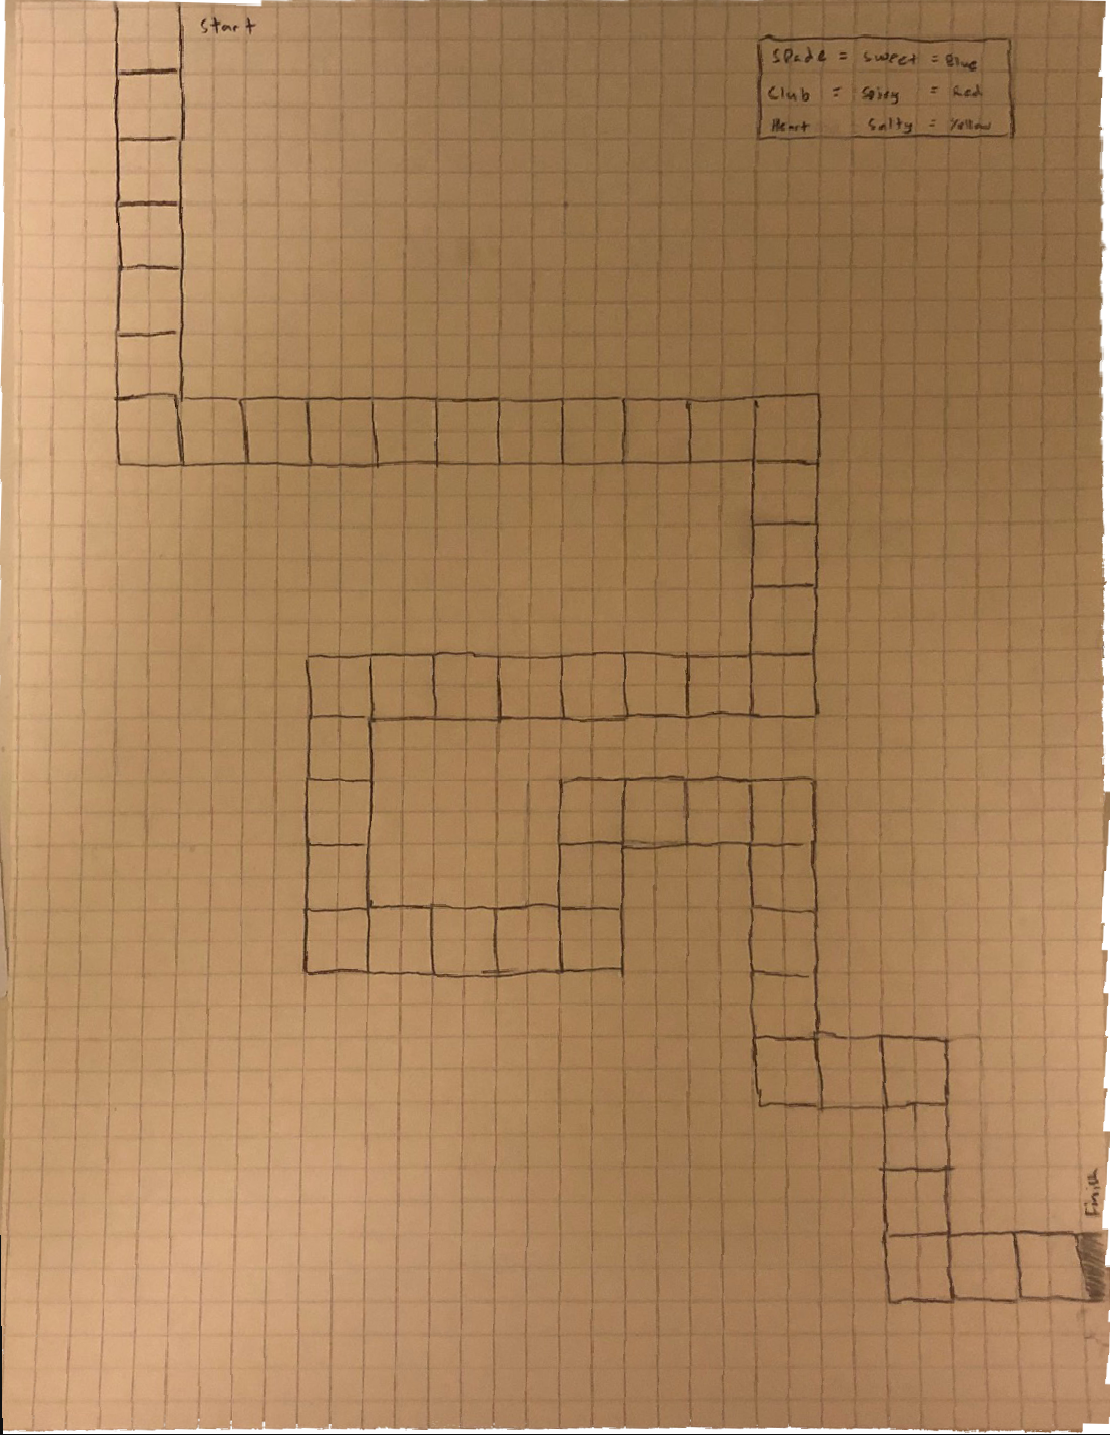 Start
Spade = Sweet = Blue
Club = Spicy = Red
Heart Salty = Yellow
Finish